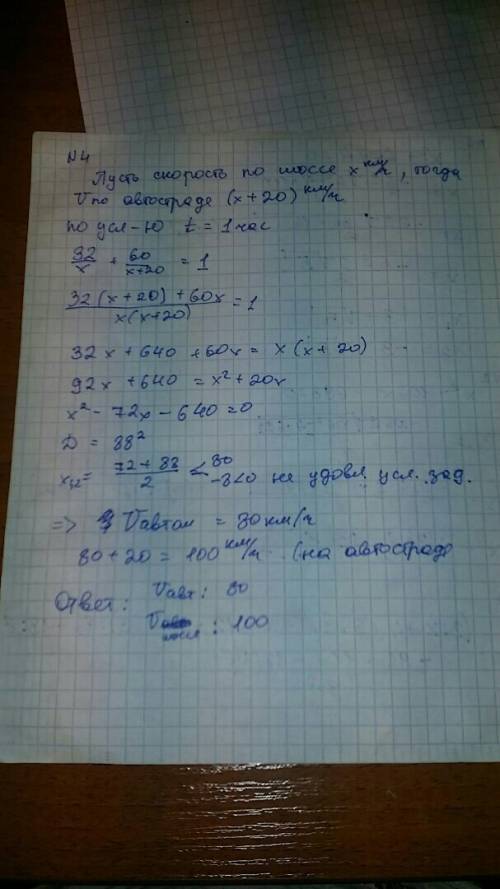 N4
Пусть скорость по шоссе x км/ч, тогда
V по автостраде (x+20) км/ч
по усл-ю t = 1 час
32/x + 60/(x+20) = 1
(32(x+20)+60x)/(x(x+20)) = 1
32x + 640 + 60x = x(x+20)
92x + 640 = x² + 20x
x² - 72x - 640 = 0
D = 88²
x₁,₂ = (72 ± 88)/2 < 80 -8<0 не удовл. усл. зад.
=> V автом = 80 км/ч
80 + 20 = 100 км/ч (на автостраде
Ответ: V авт: 80
V шосс: 100